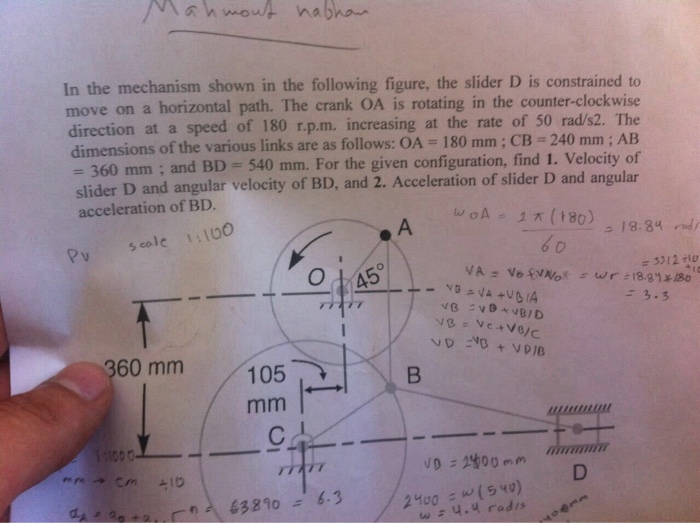 Mahmout nabhan
In the mechanism shown in the following figure, the slider D is constrained to
move on a horizontal path. The crank OA is rotating in the counter-clockwise
direction at a speed of 180 r.p.m. increasing at the rate of 50 rad/s2. The
dimensions of the various links are as follows: OA = 180 mm ; CB = 240 mm ; AB
= 360 mm ; and BD = 540 mm. For the given configuration, find 1. Velocity of
slider D and angular velocity of BD, and 2. Acceleration of slider D and angular
acceleration of BD.
PV scale 1:100
ωOA = 2π(180) / 60 = 18.84 rad/
A
O
45°
VA = VO + VA/O = ωr = 18.84 × 180
= 3.3
VB = VA + VB/A
VB = VD + VB/D
VB = VC + VB/C
VD = VB + VD/B
360 mm
105
mm
B
C
D
1:1000
mm → cm ÷10
VD = 2400 mm
2400 = ω(540)
ω = 4.4 rad/s
63890 = 6.3